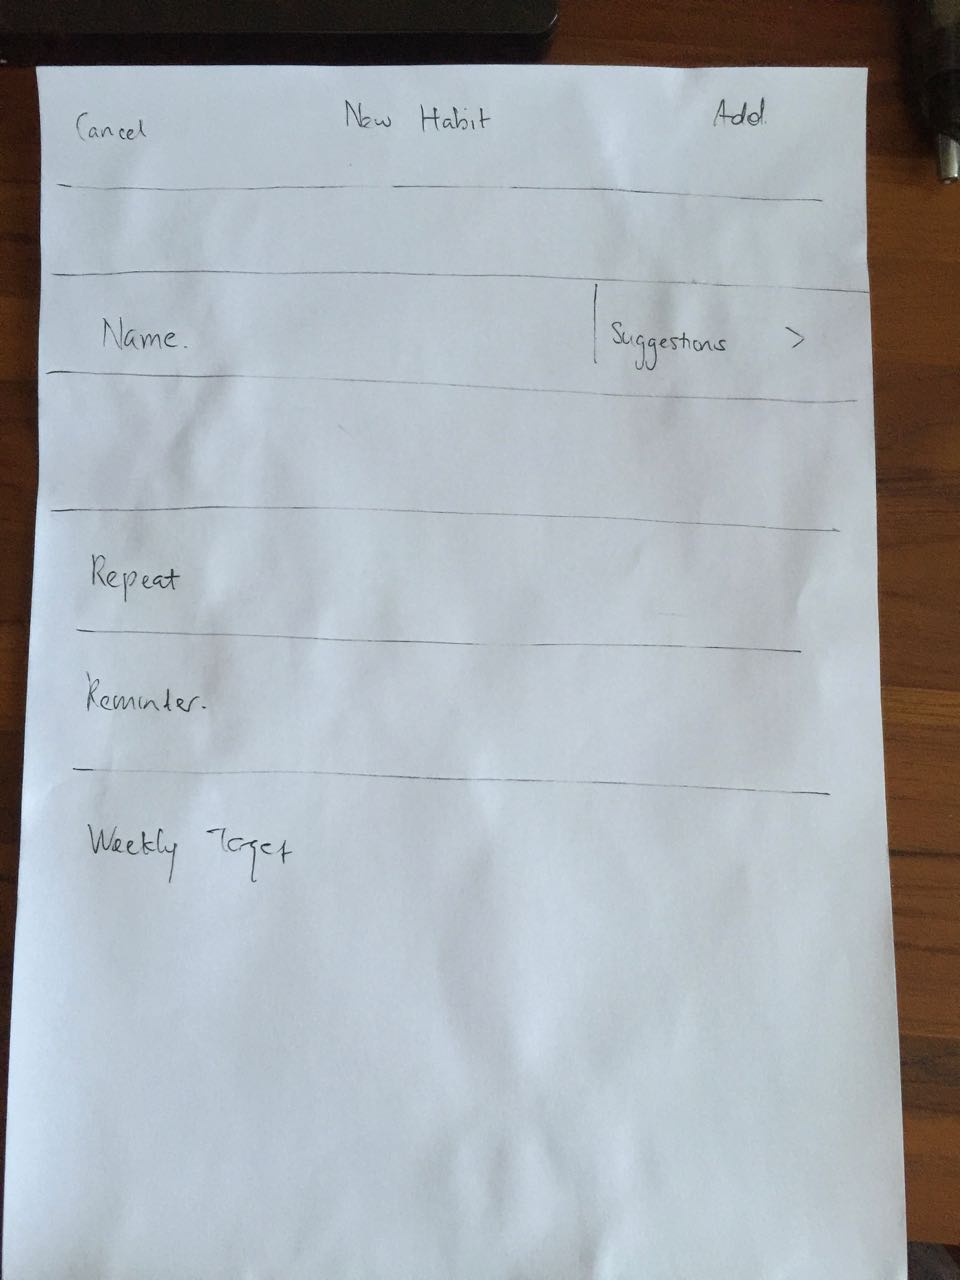 Cancel New Habit Add.
Name. Suggestions >
Repeat
Reminder.
Weekly Target